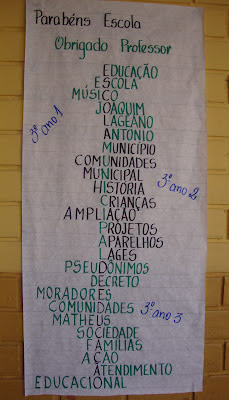 Parabéns Escola
Obrigado Professor
EDUCAÇÃO
ESCOLA
MÚSICO
JOAQUIM
LAGEANO
ANTONIO
MUNICÍPIO
COMUNIDADES
MUNICIPAL
HISTORIA
CRIANÇAS
AMPLIAÇÃO
PROJETOS
APARELHOS
LAGES
PSEUDÔNIMOS
DECRETO
MORADORES
COMUNIDADES
MATHEUS
SOCIEDADE
FAMÍLIAS
AÇÃO
ATENDIMENTO
EDUCACIONAL
3º ano 1
3º ano 2
3º ano 3